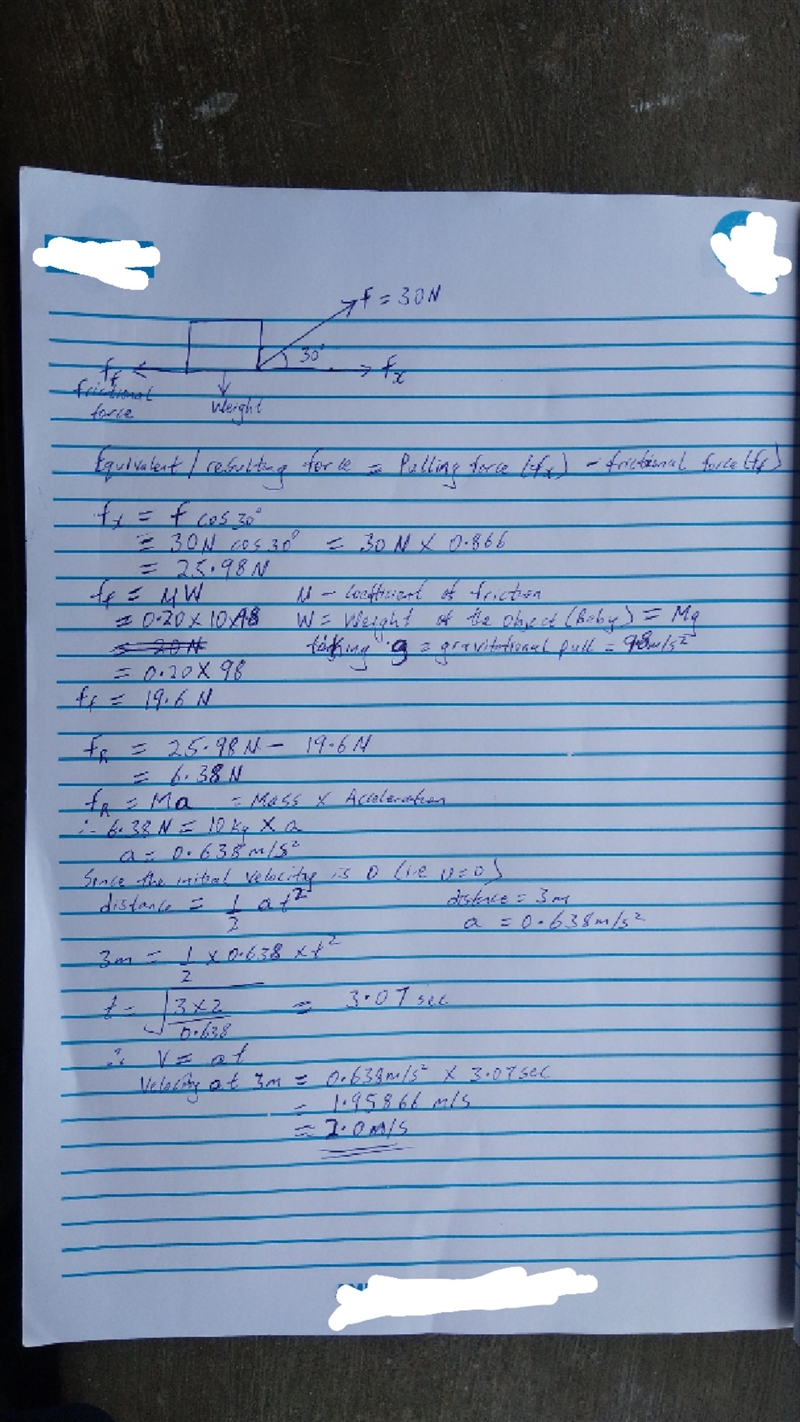 F = 30N
30°
fx
ff
frictional force
Weight
Equivalent / resulting force = Pulling force (fx) - frictional force (ff)
fx = F cos30°
= 30N cos30° = 30N × 0.866
= 25.98N
ff = MW M - Coefficient of friction
= 0.20×10×9.8 W = Weight of the object (Baby) = Mg
= 20N taking g = gravitational pull = 9.8m/s²
= 0.20×98
ff = 19.6N
fR = 25.98N - 19.6N
= 6.38N
fR = Ma = Mass × Acceleration
∴ 6.38N = 10kg × a
a = 0.638m/s²
Since the initial velocity is 0 (i.e U=0)
distance = 1/2 at² distance = 3m
a = 0.638m/s²
3m = 1/2 × 0.638 × t²
t = √3×2/0.638 = 3.07 sec
∴ V = at
Velocity at 3m = 0.638m/s² × 3.07sec
= 1.95866 m/s
= 2.0m/s